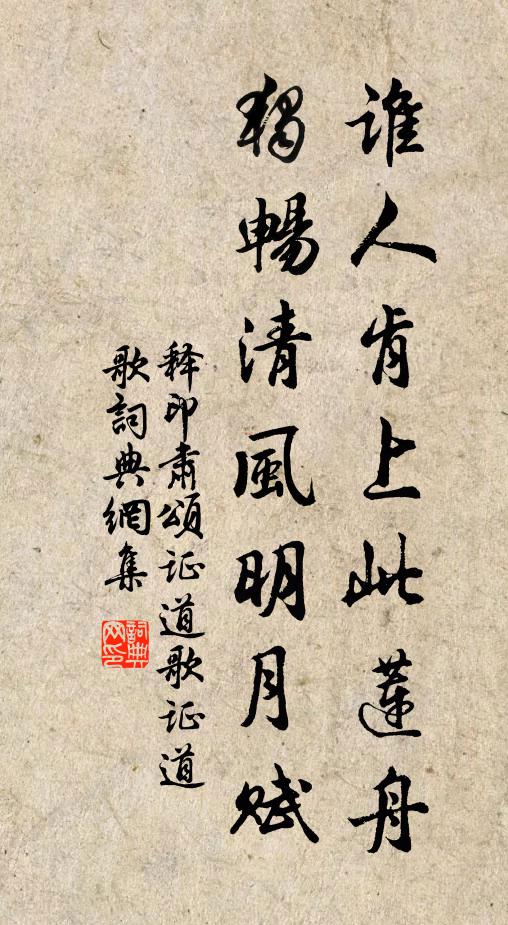 誰人肯上此蓮舟
獨暢清風明月賦
释印肅頌证道歌证道
歌詞典網集
詞典網印